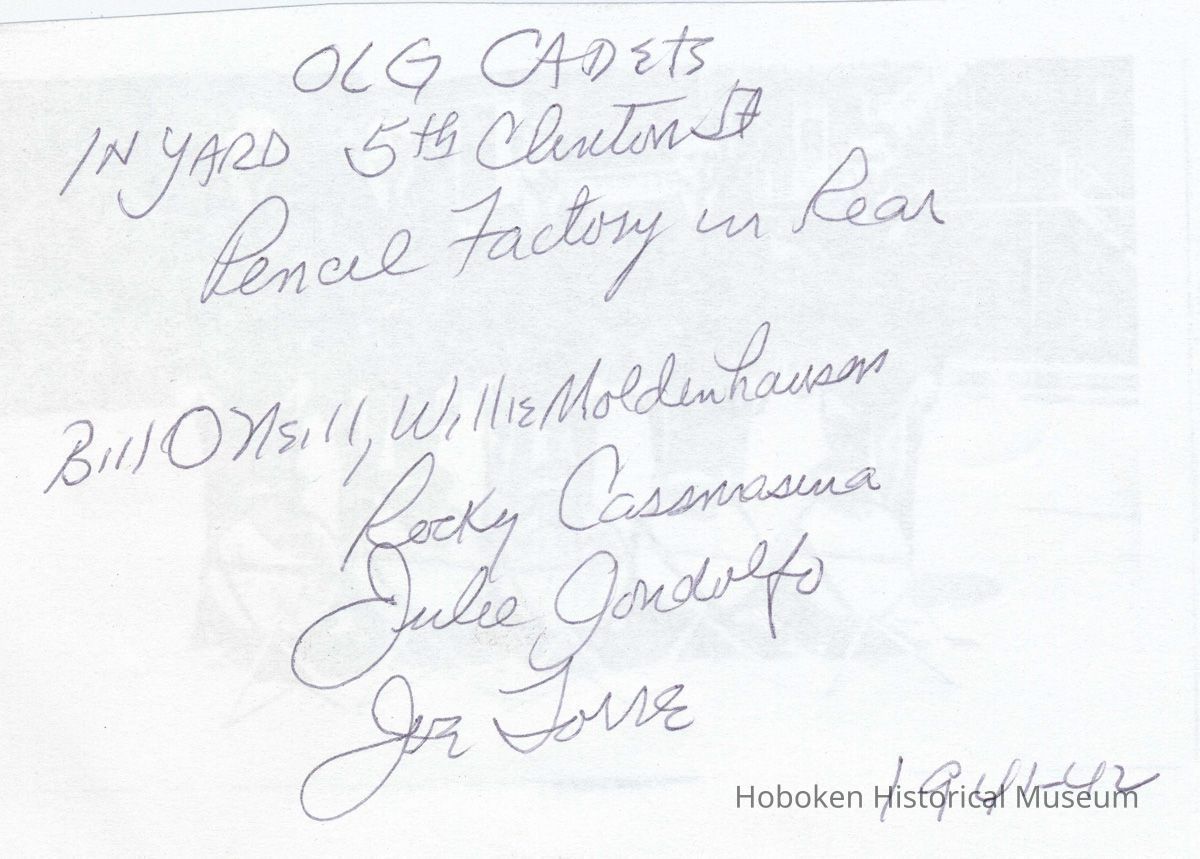 OLG CADETS
IN YARD 5th Clinton St
Pencil Factory in Rear
Bill O'Neill, Willie Moldenhauson
Rocky Cassmasina
Julie Gondolfo
Joe Torre
1941-42
Hoboken Historical Museum